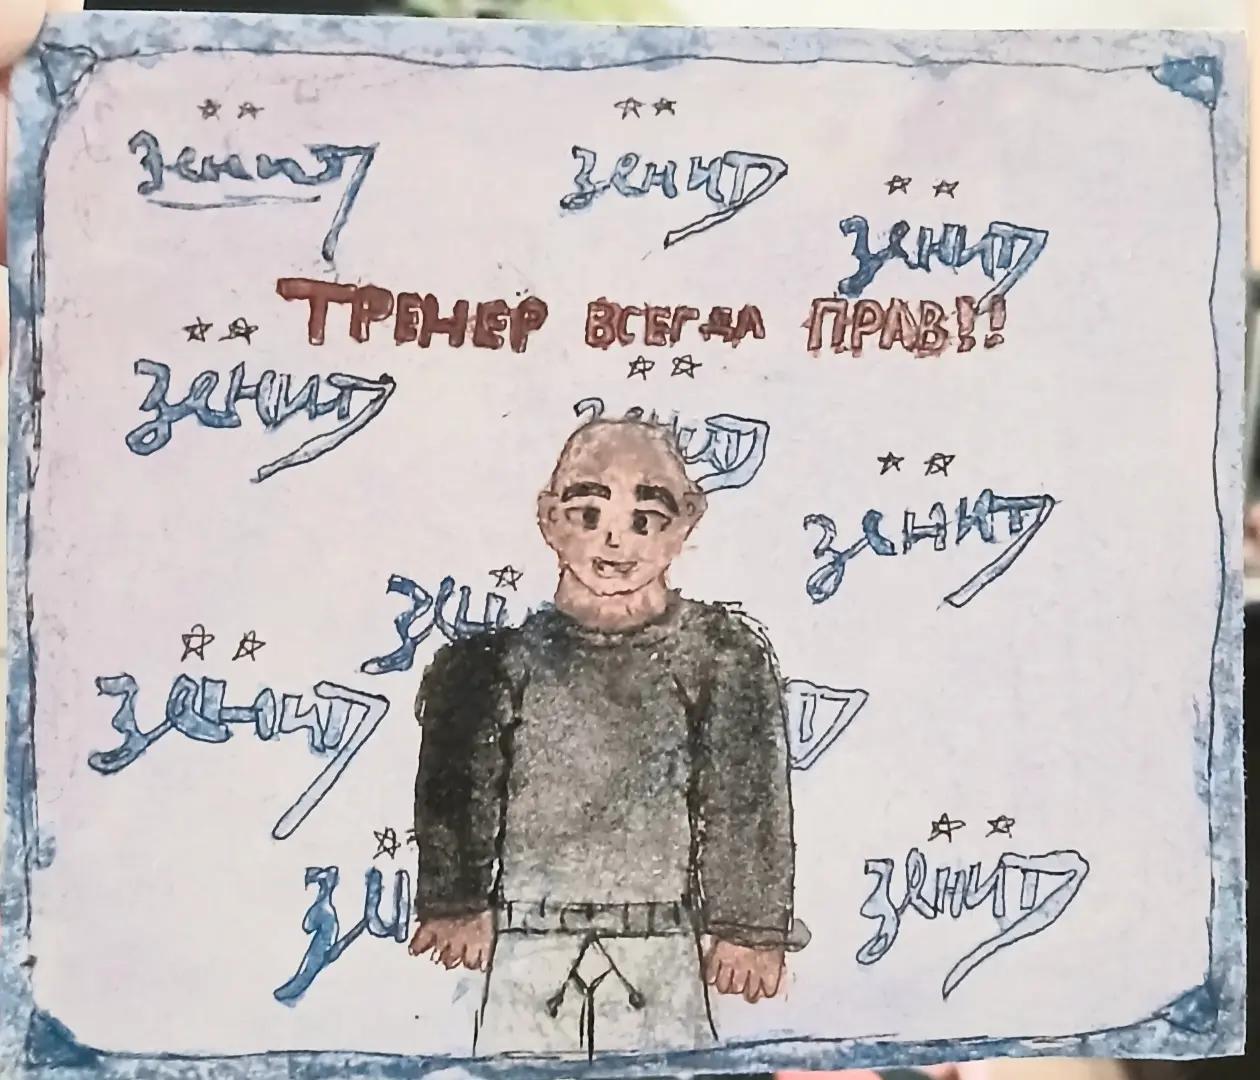 зенит
зенит
зенит
ТРЕНЕР ВСЕГДА ПРАВ!!
зенит
зенит
зенит
зен
зенит
т
зе
зенит